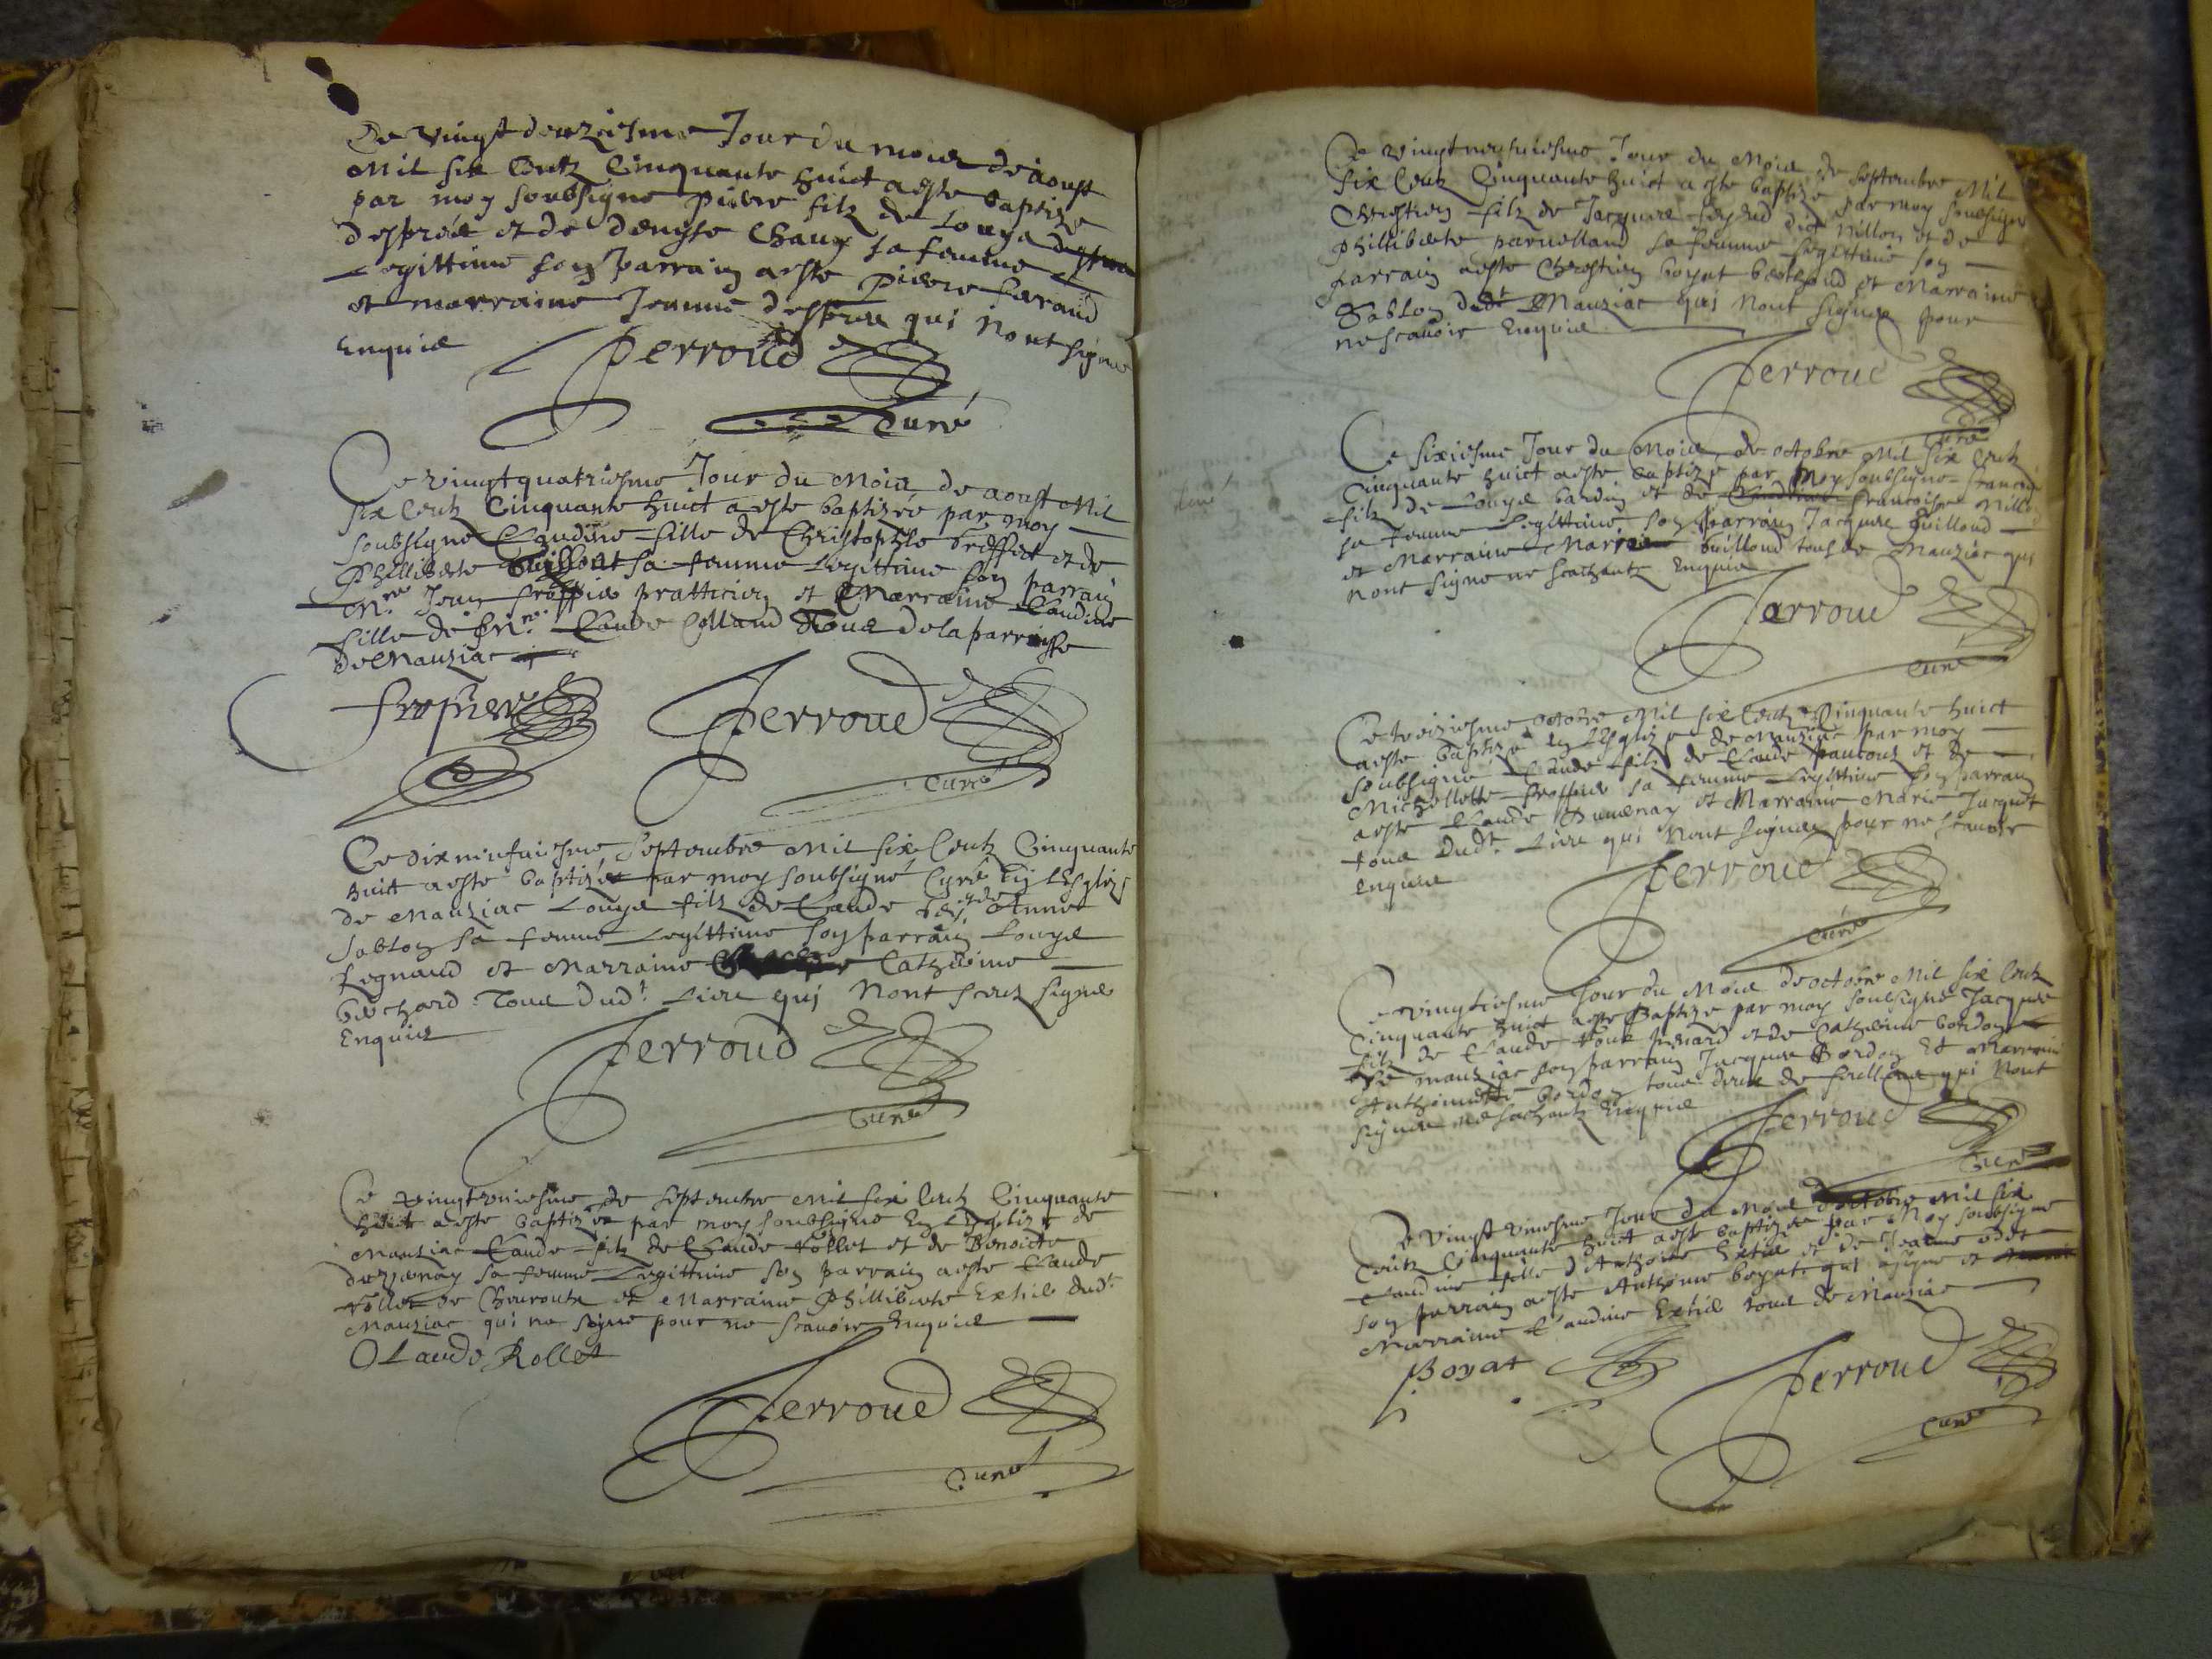 Ce vingt deuziesme Jour du mois de aoust
Mil six Centz Cinquante huict a este baptize
par moy soubsigne pierre filz de Louys
desprée et de denyse Chany sa femme
Legittime son parrain a este pierre feraud
et marraine Jeanne despres qui nont signe
Enquis
Perroud
Curé
Ce vingt quatriesme Jour du Mois de aoust Mil
six Centz Cinquante huict a este baptizée par moy
soubsigné Claudine fille de Christophle et de
Philliberte sa femme Legittime son parrain
Mre Jean pratticien et Marraine Claudine
fille de Mre Claude Colland Tous de la parroisse
de Mauziac
Perroud
Curé
Ce dix neufuiesme Septembre Mil six Centz Cinquante
huict a este baptizé par moy soubsigné Curé en Lesglize
de Mauziac Louys filz de Claude et de Anne
Sablon sa femme Legittime son parrain Louys
Regnaud et Marraine Catherine
bechard Tous dudt Lieu qui Nont sceu signe
Enquis
Perroud
Curé
Ce vingtroiesme de septembre Mil six Centz Cinquante
huict a este baptizé par moy soubsigne En Lesglize de
Mauziac Claude filz de Claude Rollet et de Benoicte
sa femme Legittime son parrain a este Claude
Rollet de et Marraine Philliberte Extié dudt
Mauziac qui na signe pour ne scauoir Enquis
Claude Rollet
Perroud
Curé
Ce vingtneufuiesme Jour du Mois de septembre Mil
six Centz Cinquante huict a este baptize par moy soubsigne
Chrestien filz de Jacques dit Nillon et de
Phillibérte sa femme Legittime son
parrain a este Chrestien boyat et Marraine
Sablon dudt Mauziac qui Nont signes pour
ne scauoir Enquis
Perroud
Curé
Ce sixiesme Jour du Mois de octobre Mil six Centz
Cinquante huict a este baptizé par Moy soubsigne francoys
filz de Louys bardin et de francoise Nillon
sa femme Legittime son parrain Jacques Guilloud
et Marraine Marie Guilloud tous de Mauziac qui
nont signe ne scachantz Enquis
Perroud
Curé
Ce treiziesme octobre Mil six Centz Cinquante huict
a este baptizé en Lesglize de Mauziac par moy
soubsigne Claude filz de Claude et de
Michellette sa femme Legittime son parrain
a este Claude et Marraine Marie Jacquet
tous dudt Lieu qui Nont signes pour ne scauoir
enquis
Perroud
Curé
Ce vingtiesme Jour du Mois de octobre Mil six Centz
Cinquante huict a este Baptize par moy soubsigné Jacques
filz de Claude et de Catherine bordon
de mauziac son parrain Jacques Bordon Et Marraine
Anthoinette bordon tous deux de qui Nont
signes ne sachantz enquis
Perroud
Curé
Ce Vingt uniesme Jour du Mois d'octobre Mil six
Centz Cinquante huict a este baptizée par Moy soubsigne
Claudine fille d'Anthoine Extié et de Jeanne
son parrain a este Anthoine boyat qui a signe et
Marraine Claudine Extié tous de Mauziac
Boyat
Perroud
Curé